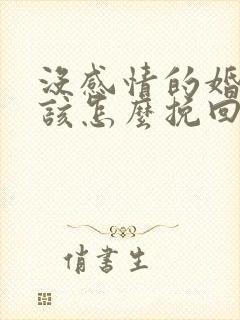 沒感情的婚
該怎麼挽回
俏書生